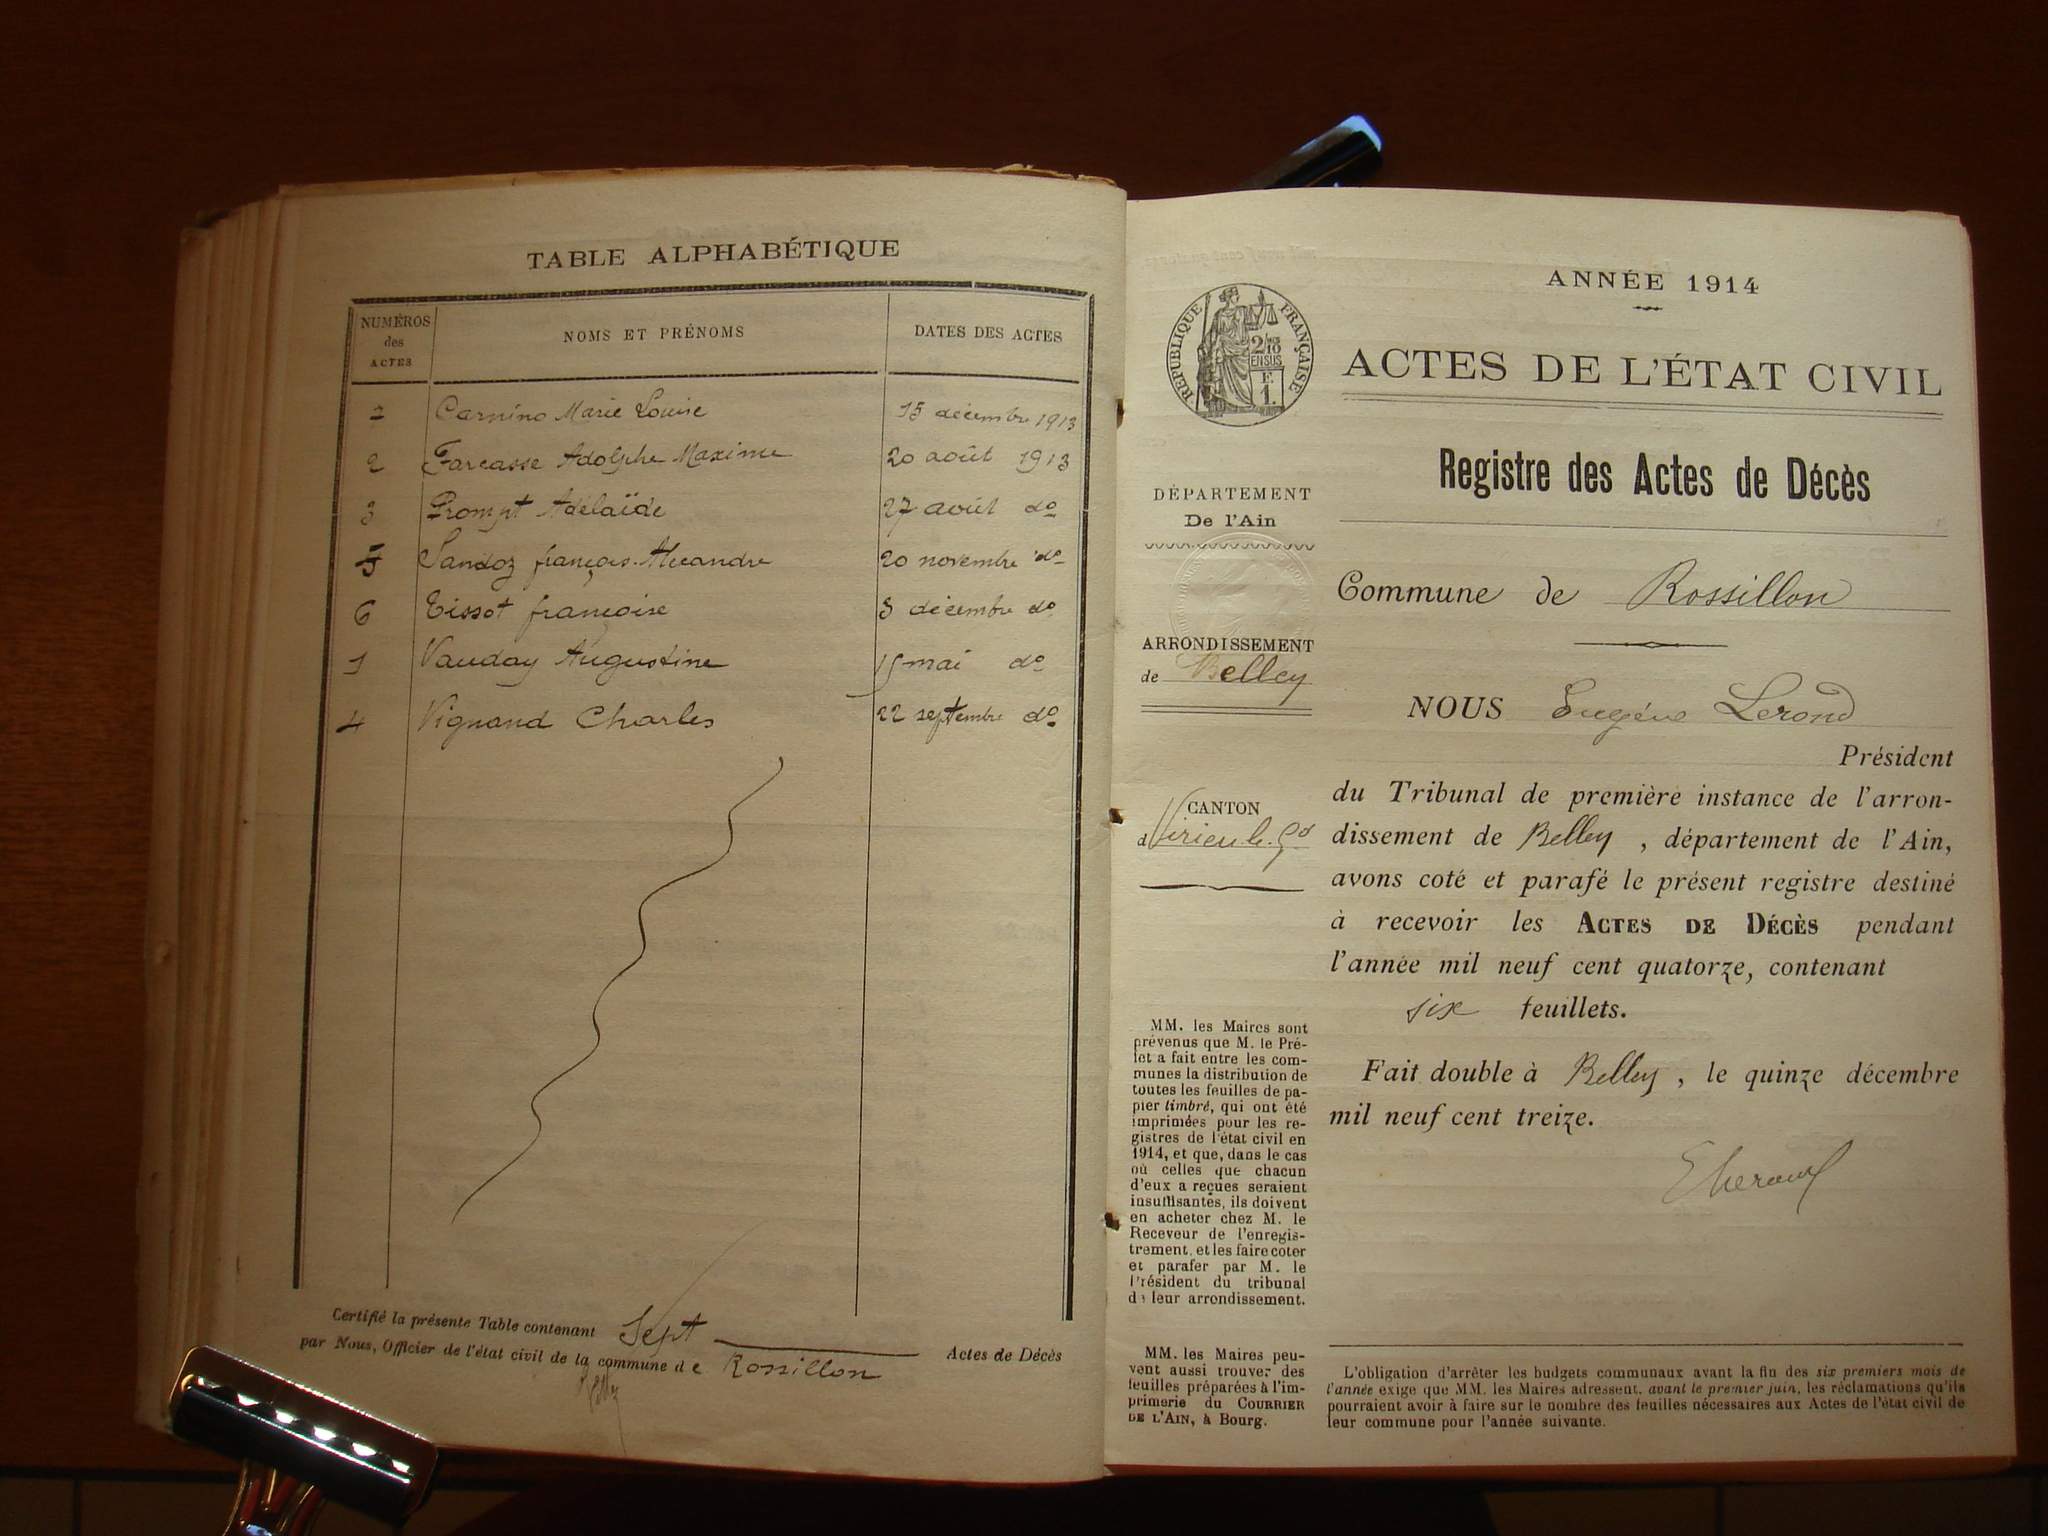 TABLE ALPHABÉTIQUE
NUMÉROS
des
ACTES
NOMS ET PRÉNOMS
DATES DES ACTES
7 Carnino Marie Louise 15 décembre 1913
2 Farcasse Adolphe Maxime 20 août 1913
3 Prompt Adélaïde 27 août do
5 Sandoz françois Alexandre 20 novembre do
6 Tissot françoise 3 décembre do
1 Vauday Augustine 15 mai do
4 Vignand Charles 22 septembre do
Certifié la présente Table contenant Sept Actes de Décès
par Nous, Officier de l'état civil de la commune de Rossillon
ANNÉE 1914
RÉPUBLIQUE FRANÇAISE
2/10
EN SUS
F.
1.
ACTES DE L'ÉTAT CIVIL
Registre des Actes de Décès
DÉPARTEMENT
De l'Ain
Commune de Rossillon
ARRONDISSEMENT
de Belley
NOUS Eugène Lerond
Président
CANTON
d Virieu le Gd
du Tribunal de première instance de l'arron-
dissement de Belley, département de l'Ain,
avons coté et parafé le présent registre destiné
à recevoir les ACTES DE DÉCÈS pendant
l'année mil neuf cent quatorze, contenant
six feuillets.
Fait double à Belley, le quinze décembre
mil neuf cent treize.
MM. les Maires sont
prévenus que M. le Pré-
fet a fait entre les com-
munes la distribution de
toutes les feuilles de pa-
pier timbré, qui ont été
imprimées pour les re-
gistres de l'état civil en
1914, et que, dans le cas
où celles que chacun
d'eux a reçues seraient
insuffisantes, ils doivent
en acheter chez M. le
Receveur de l'enregis-
trement, et les faire coter
et parafer par M. le
Président du tribunal
de leur arrondissement.
MM. les Maires peu-
vent aussi trouver des
feuilles préparées à l'im-
primerie du COURRIER
DE L'AIN, à Bourg.
L'obligation d'arrêter les budgets communaux avant la fin des six premiers mois de
l'année exige que MM. les Maires adressent, avant le premier juin, les réclamations qu'ils
pourraient avoir à faire sur le nombre des feuilles nécessaires aux Actes de l'état civil de
leur commune pour l'année suivante.